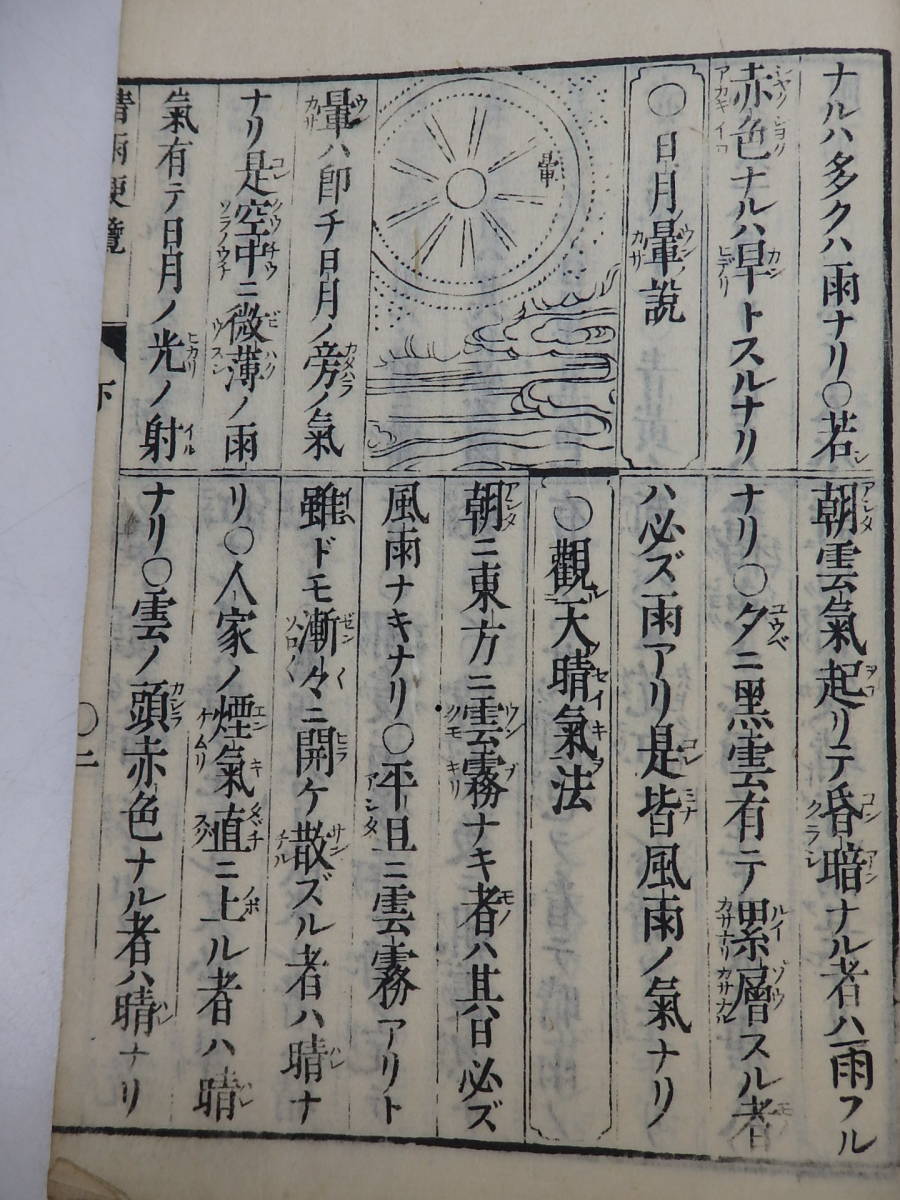 ナルハ多クハ雨ナリ〇若シ
赤色ナルハ旱トスルナリ
〇日月ノ暈ノ説
暈
暈ハ即チ日月ノ旁ノ氣
ナリ是空中ニ微薄ノ雨
氣有テ日月ノ光ノ射
朝雲氣起リテ昏暗ナル者ハ雨フル
ナリ〇夕ニ黒雲有テ累層スル者
ハ必ズ雨アリ是皆風雨ノ氣ナリ
〇觀天晴氣法
朝ニ東方ニ雲霧ナキ者ハ其日必ズ
風雨ナキナリ〇平旦ニ雲霧アリト
雖ドモ漸々ニ開ケ散ズル者ハ晴ナ
リ〇人家ノ煙氣直ニ上ル者ハ晴
ナリ〇雲ノ頭赤色ナル者ハ晴ナリ
晴雨便覽
下
〇二